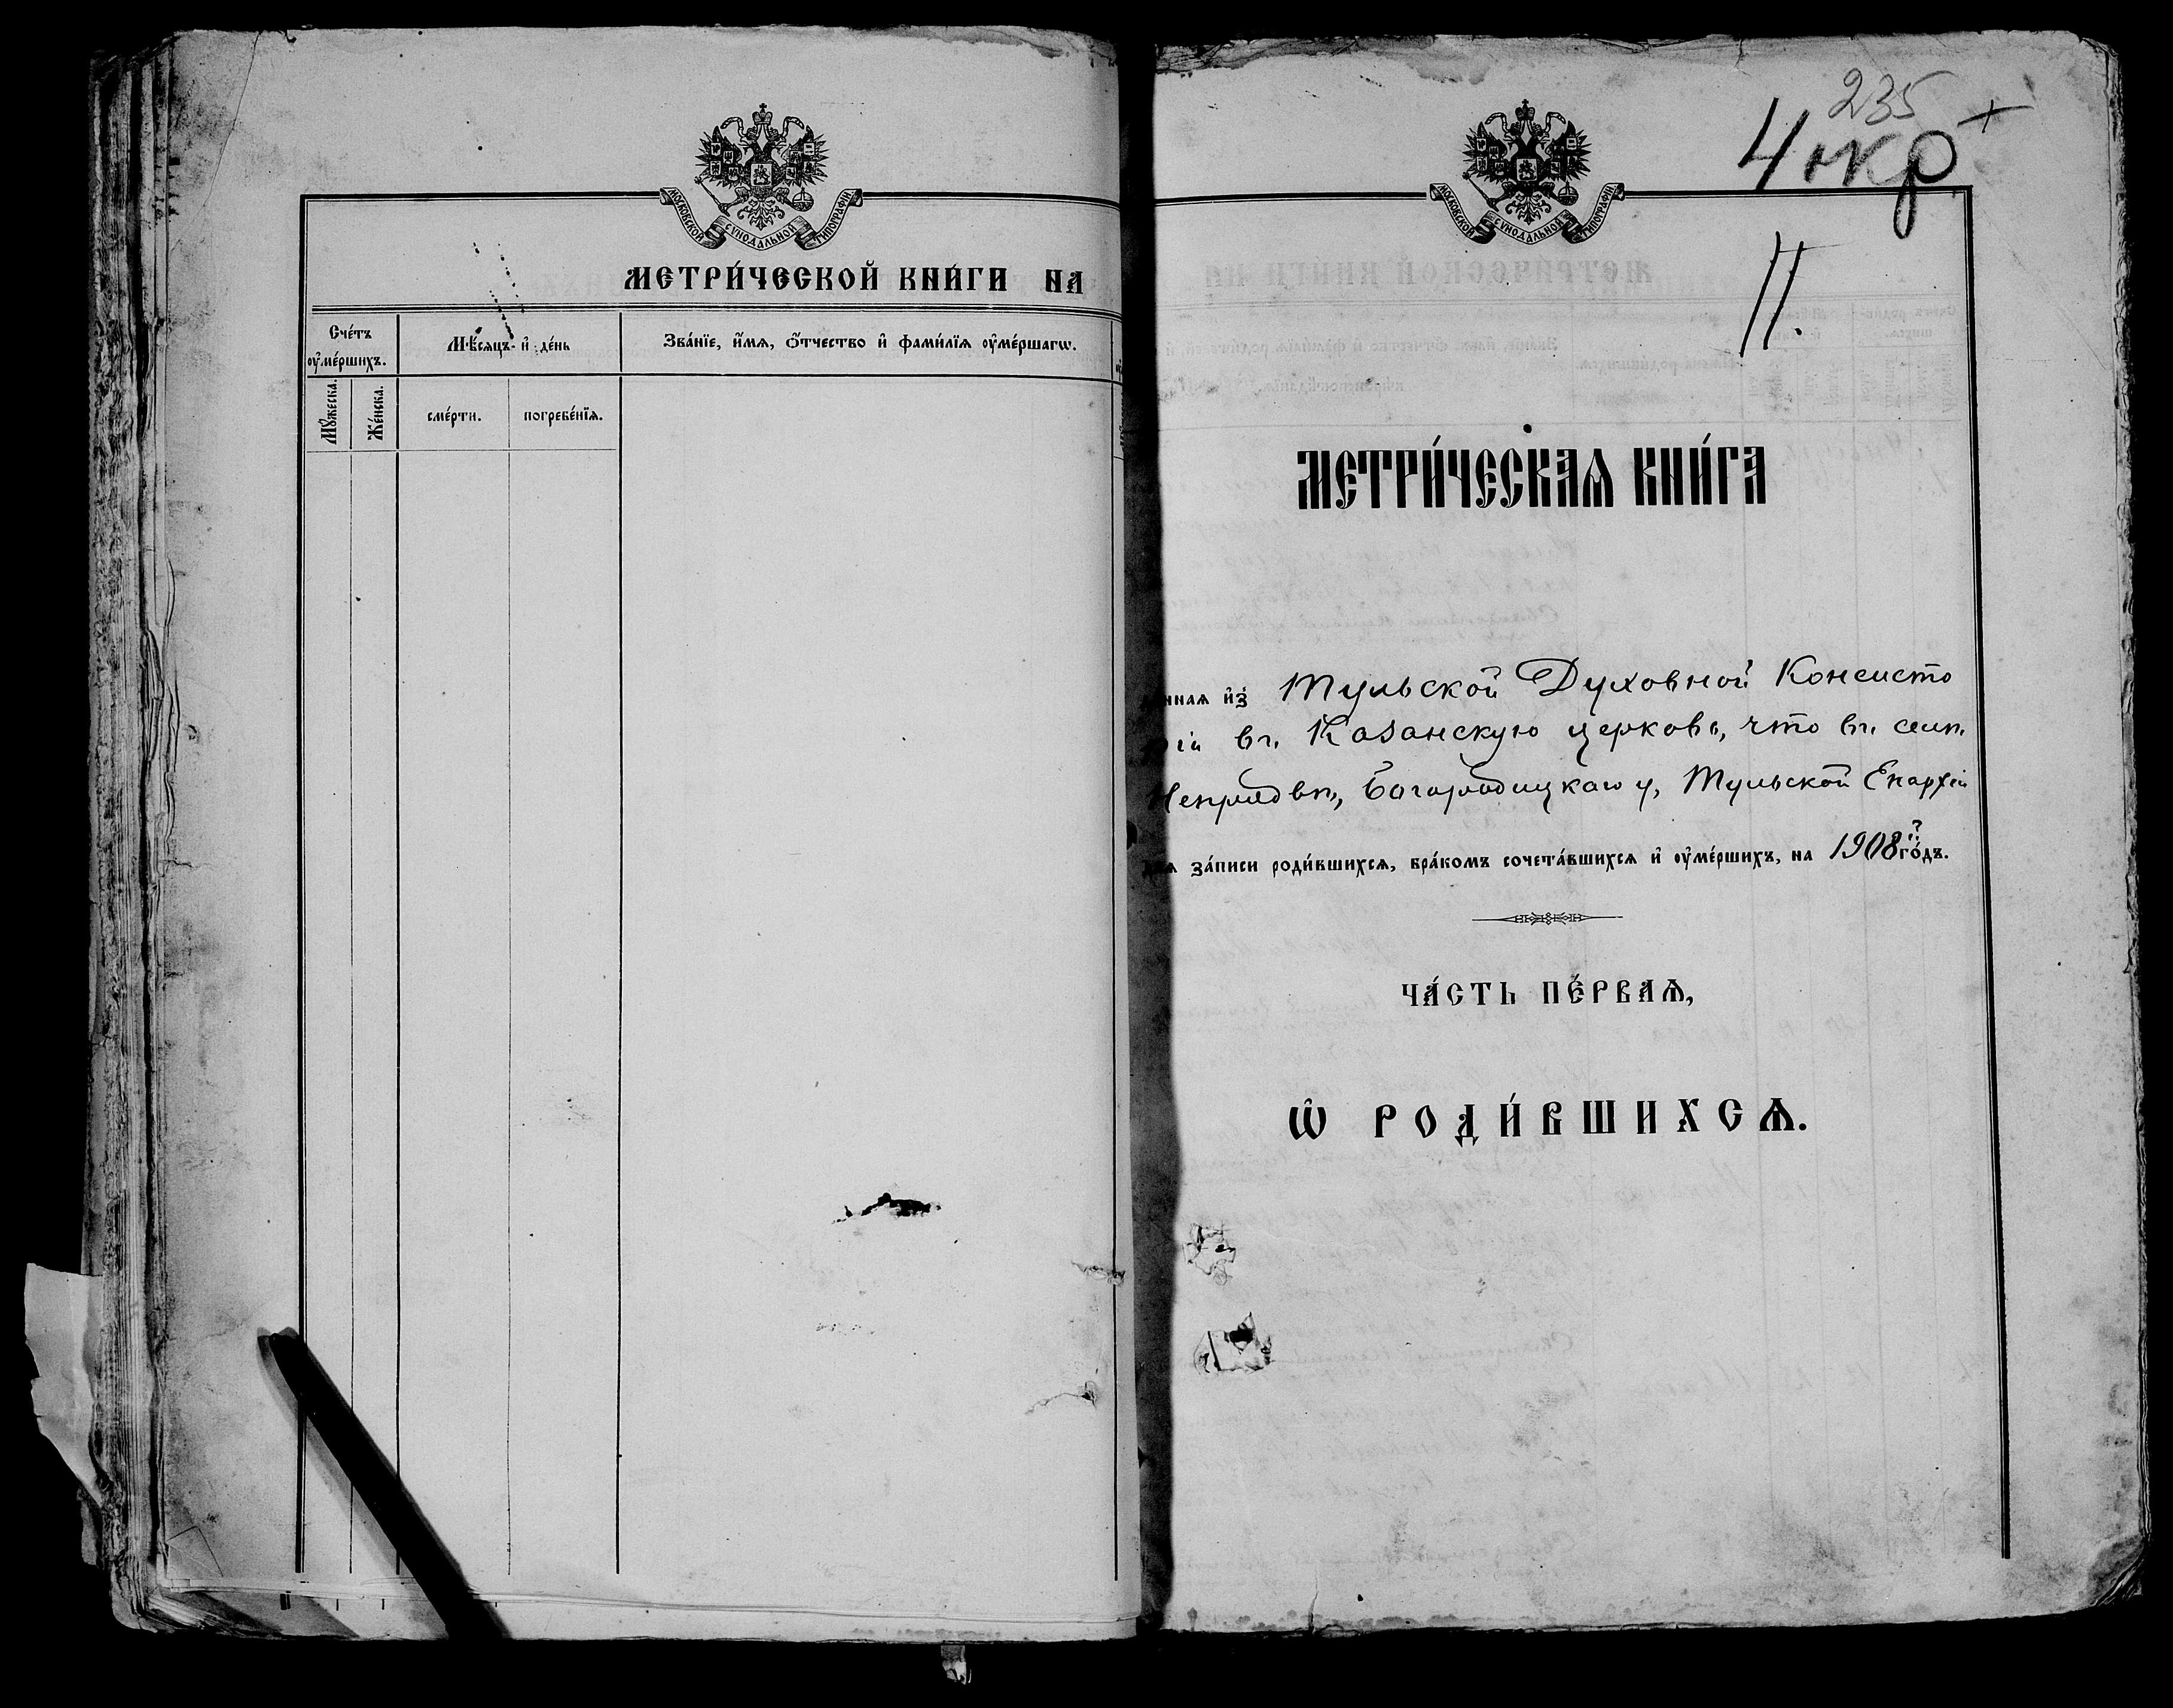 МОСКОВСКОЙ СѴНОДАЛЬНОЙ ТИПОГРАФІИ
МЕТРИ́ЧЕСКОЙ КНИ́ГИ НА
Сче́тъ ᲂу҆ме́ршихъ.
Мѣ́сяцъ и҆ де́нь
Зва́нїе, и҆́мѧ, ѻ҆́тчество и҆ фами́лїѧ ᲂу҆ме́ршагѡ.
Мꙋ́жеска.
Же́нска.
сме́рти.
погребе́нїѧ.
235
4 окр +
МОСКОВСКОЙ СѴНОДАЛЬНОЙ ТИПОГРАФІИ
11.
МЕТРИ́ЧЕСКАѦ КНИ́ГА
ннаѧ и҆з̾ Тульской Духовной Консисто
ріи въ Казанскую церковь, что въ селѣ
Непрядвѣ, Богородицкаго у, Тульской Епархіи
для за́писи роди́вшихсѧ, бра́комъ сочета́вшихсѧ и҆ ᲂу҆ме́ршихъ, на 1908 го́дъ.
ЧА́СТЬ ПЕ́РВАѦ,
Ѽ РОДИ́ВШИХСѦ.